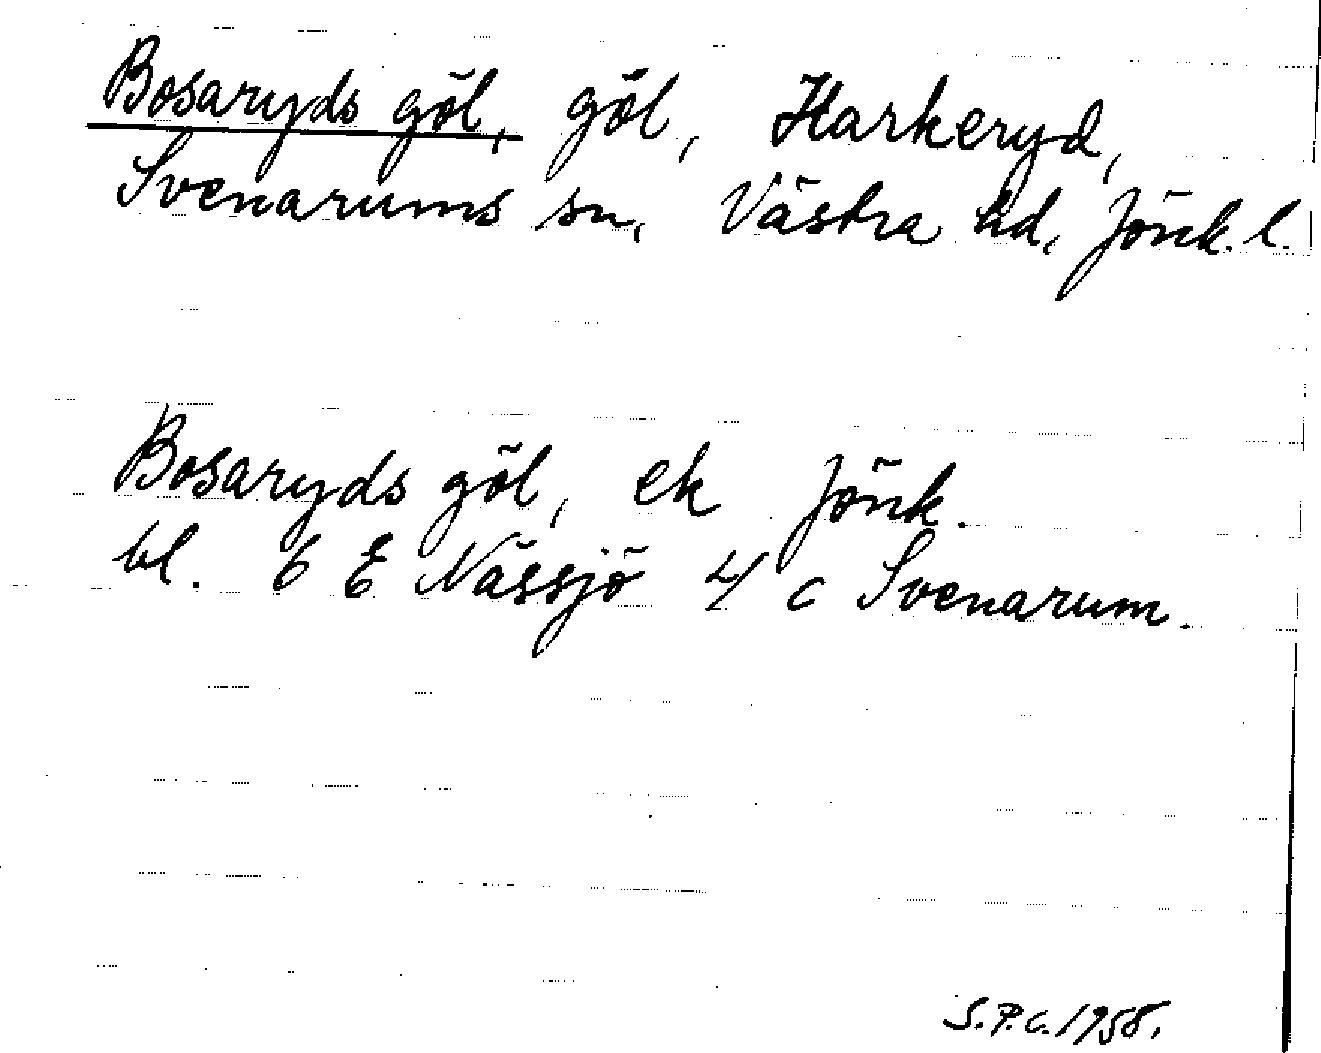 Bosaryds göl, göl, Harkeryd,
Svenarums sn, Västra hd, Jönk. l.
Bosaryds göl, ek Jönk.
bl. 6 E Nässjö 4 c Svenarum.
S.P.C. 1958.